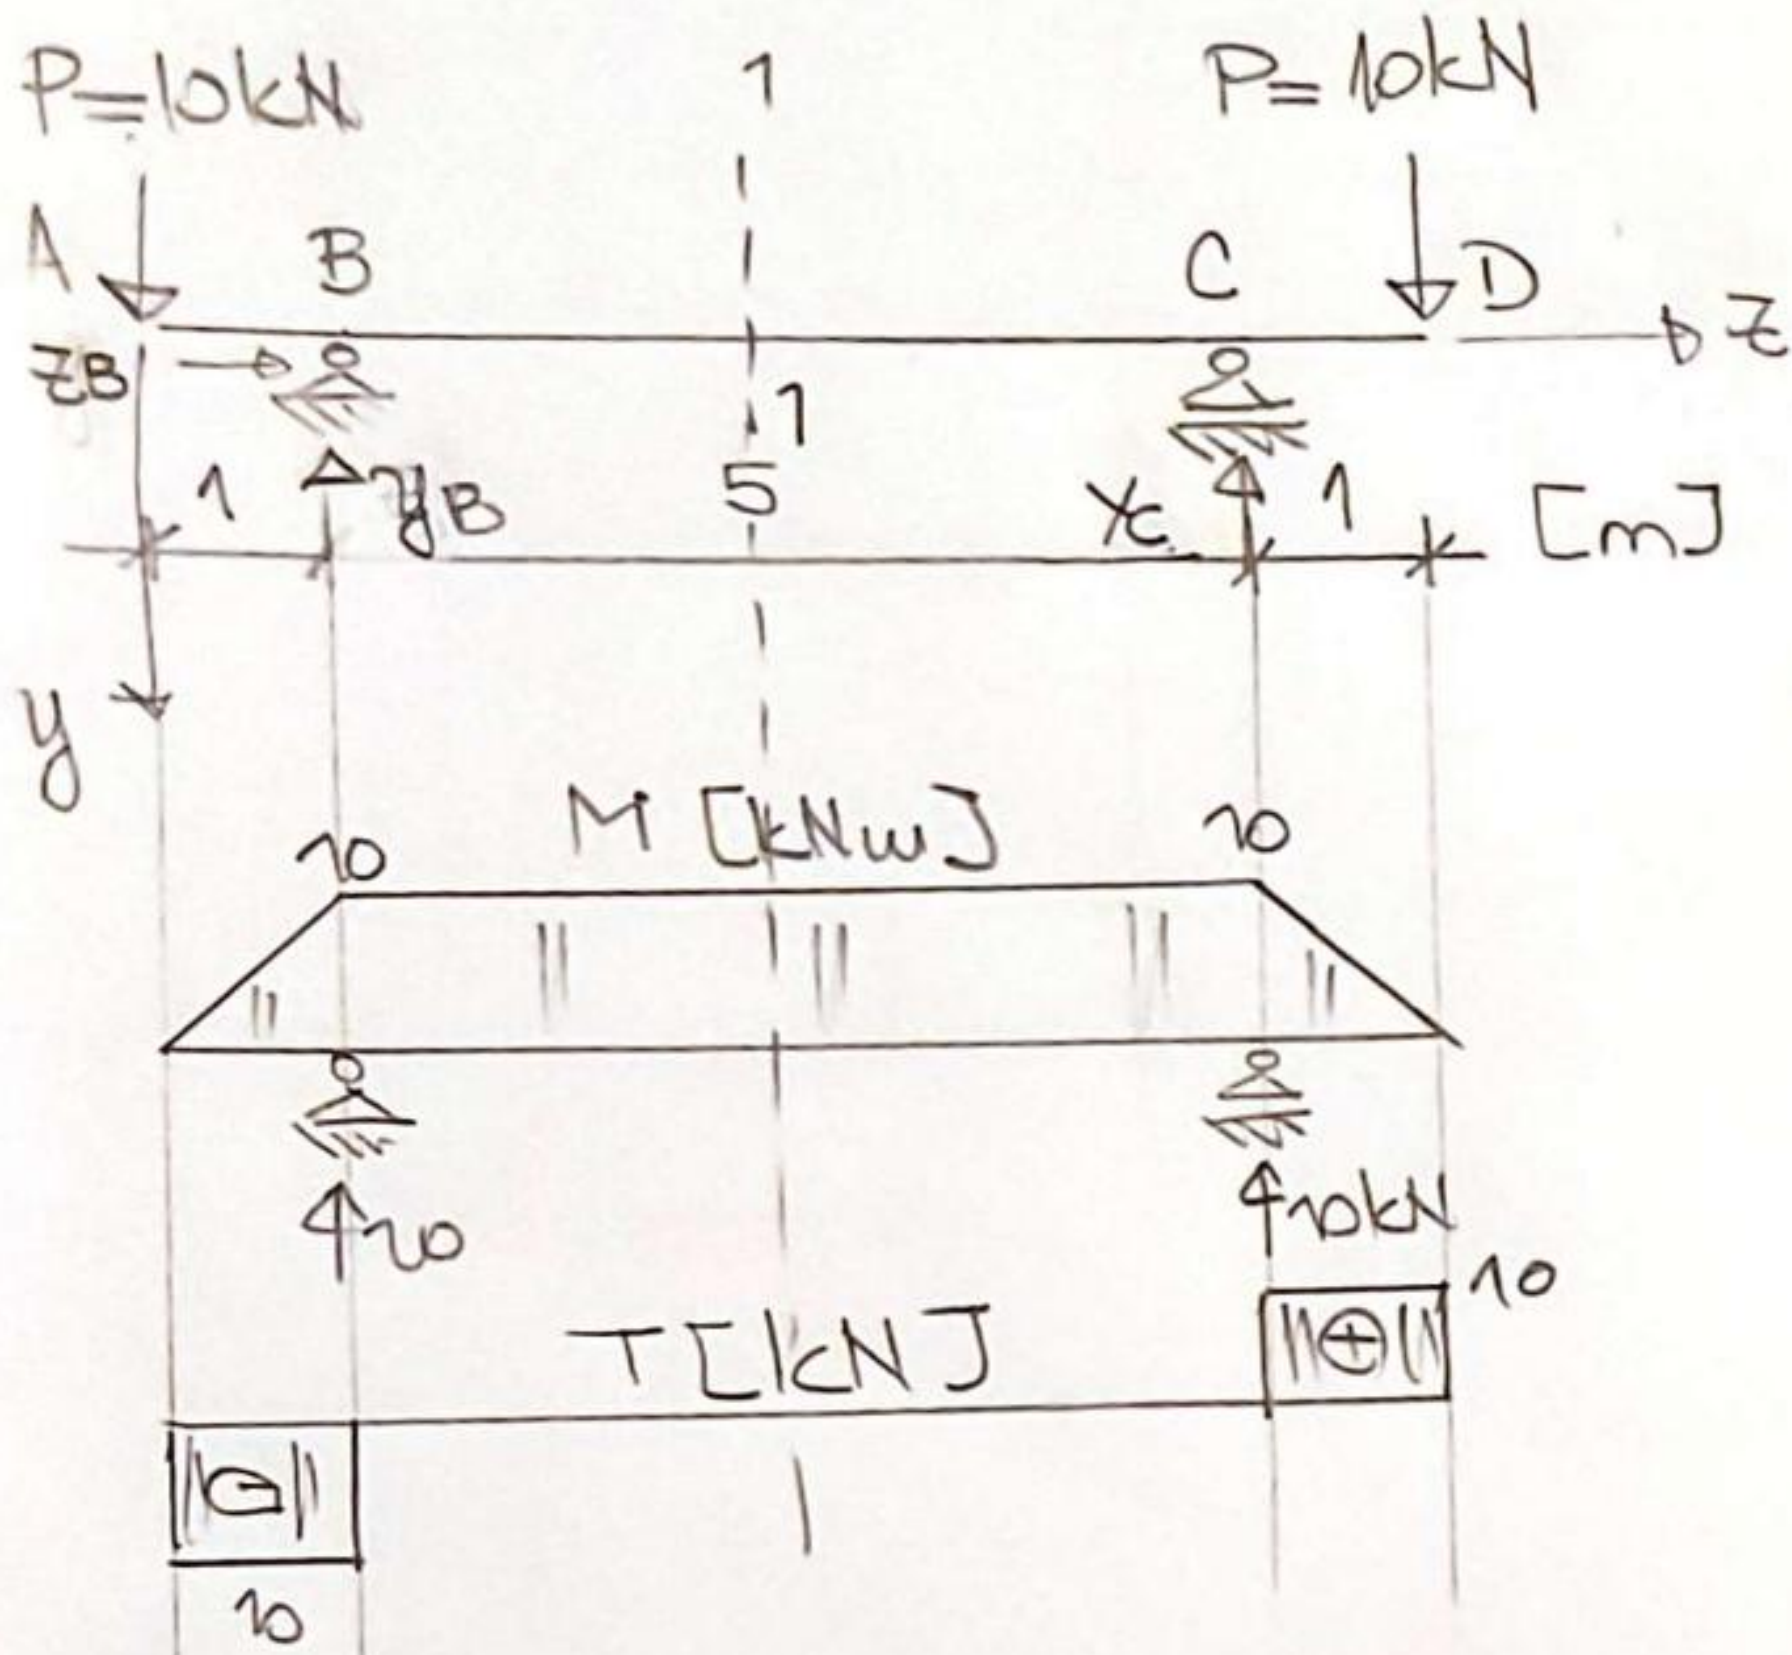 P=10kN 1 P=10kN
A B C D
z
zB
1
1 yB 5 Yc 1 [m]
y
M [kNm]
10 10
10 10kN
10
T[kN]
⊖ ⊕
10